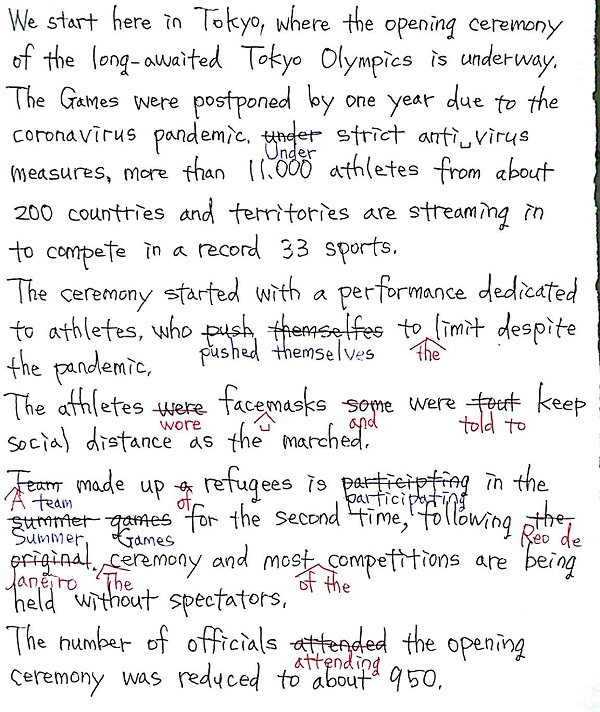 We start here in Tokyo, where the opening ceremony
of the long-awaited Tokyo Olympics is underway.
The Games were postponed by one year due to the
coronavirus pandemic. under strict anti virus
Under
measures, more than 11.000 athletes from about
200 countries and territories are streaming in
to compete in a record 33 sports.
The ceremony started with a performance dedicated
to athletes, who push themselfes to limit despite
pushed themselves the
the pandemic.
The athletes were facemasks some were tout keep
wore and told to
social distance as the marched.
Team made up a refugees is participting in the
A team of participating
summer games for the second time, following the
Summer Games Reo de
original. ceremony and most competitions are being
Janeiro The of the
held without spectators.
The number of officials attended the opening
attending
ceremony was reduced to about 950.